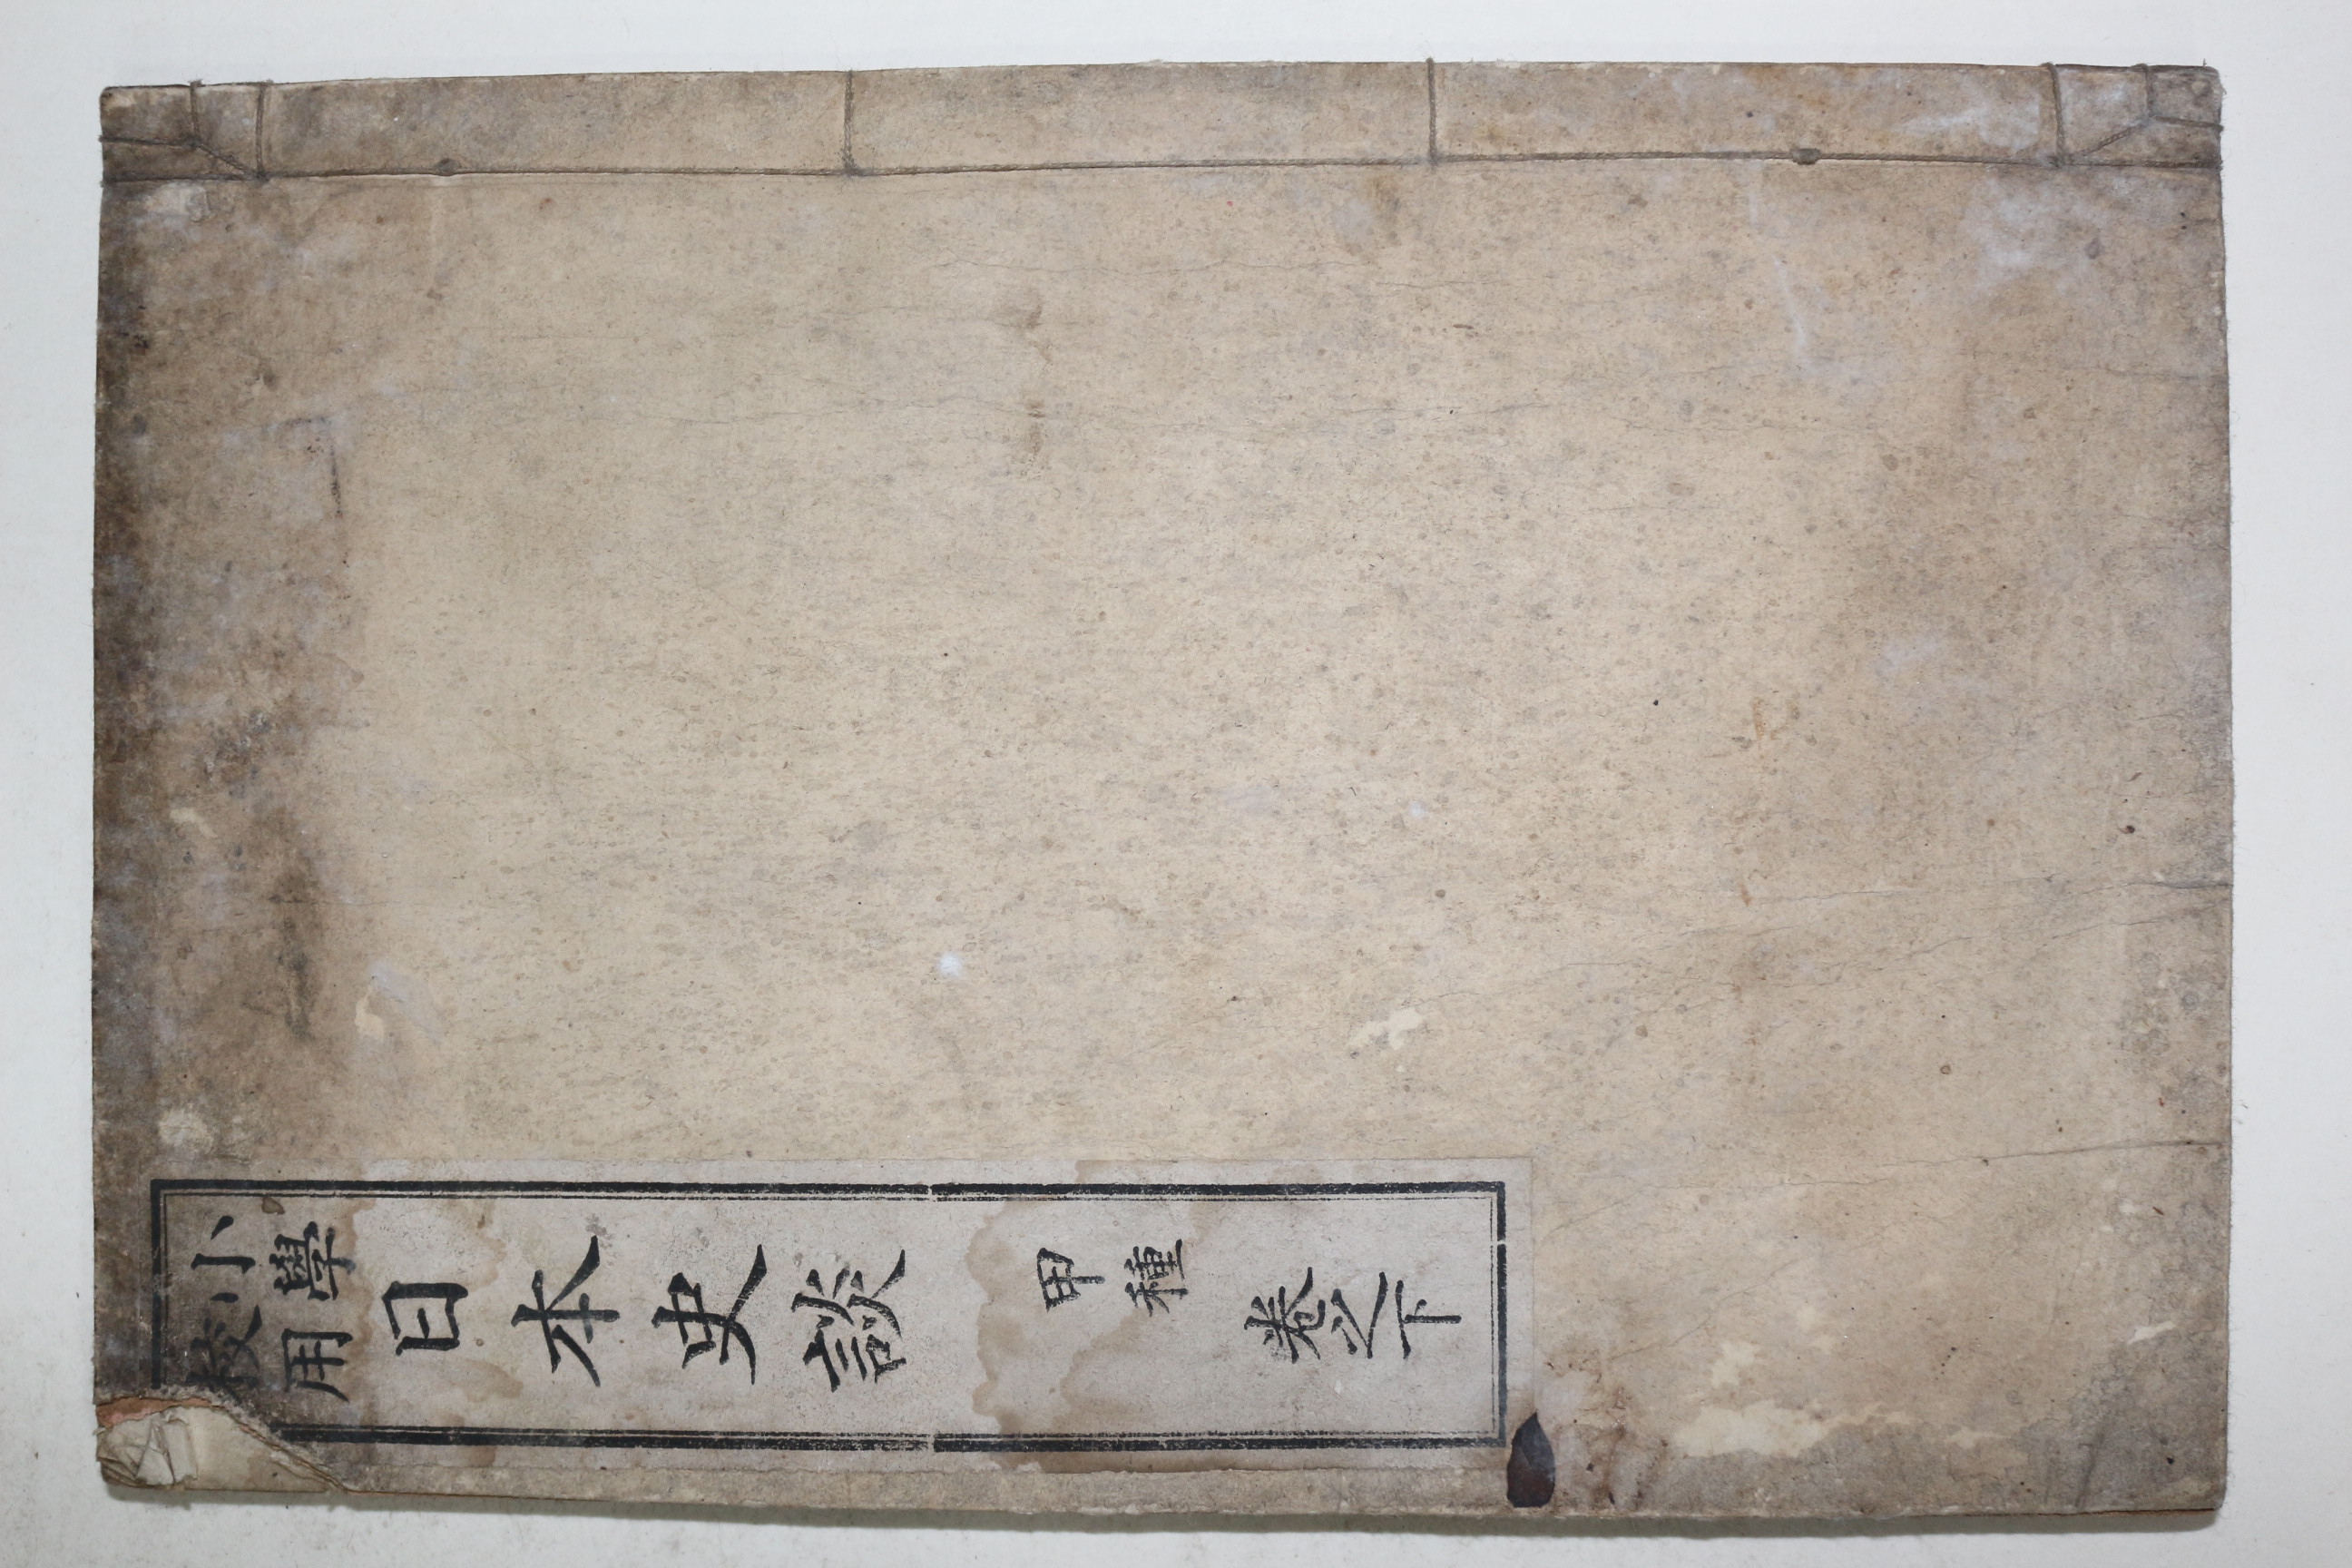 小學
校用
日本史談
甲種
卷之下